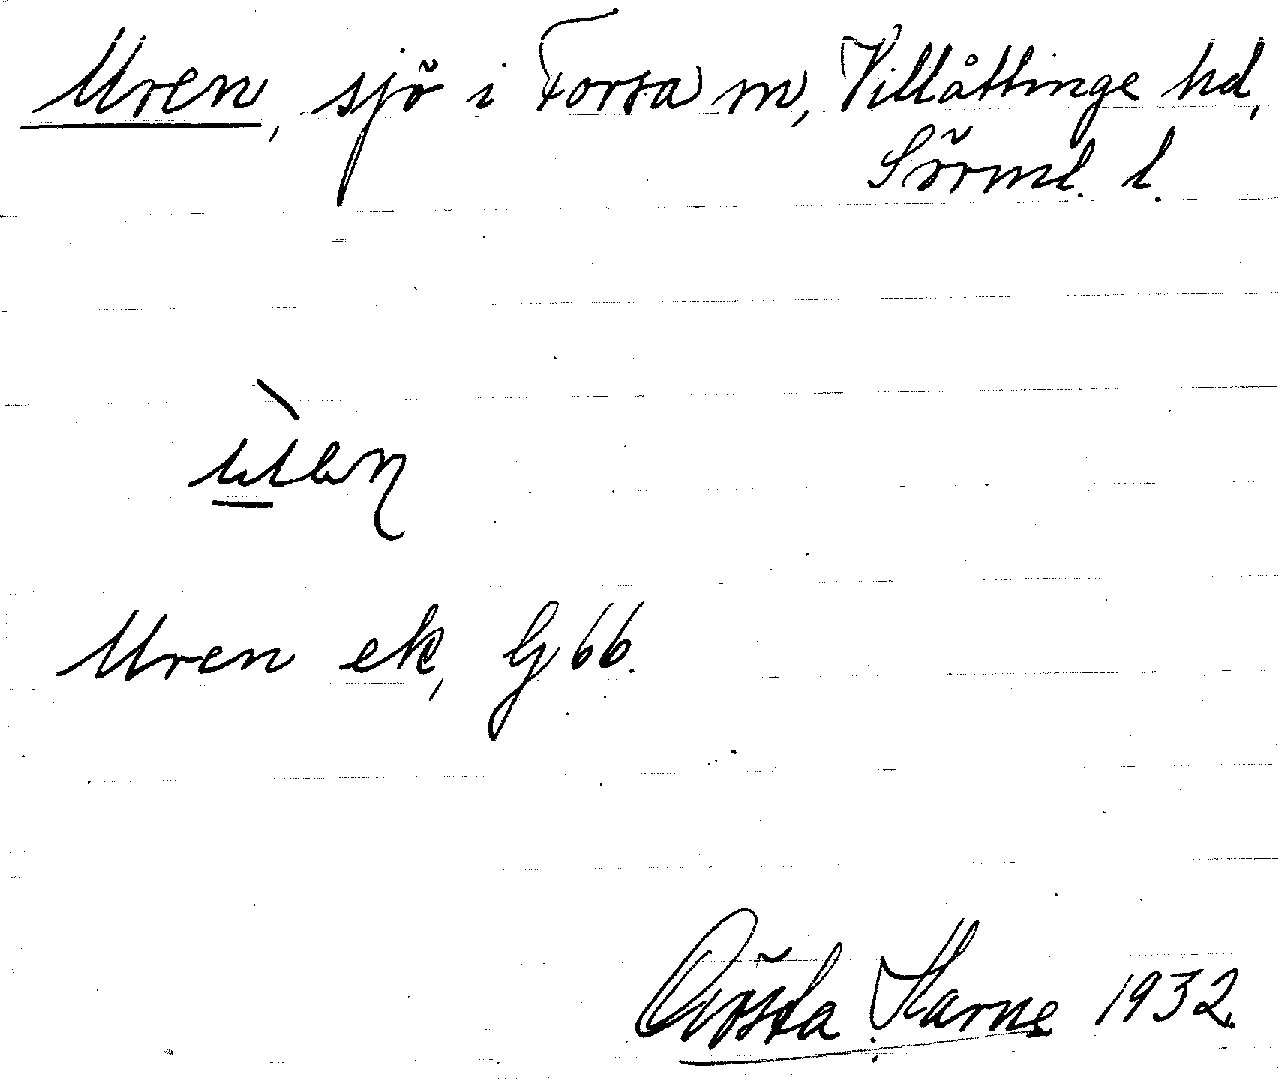 Uren, sjö i Forssa sn, Villåttinge hd,
Sörml. l.
Uren ek, G 66.
Gösta Harne 1932